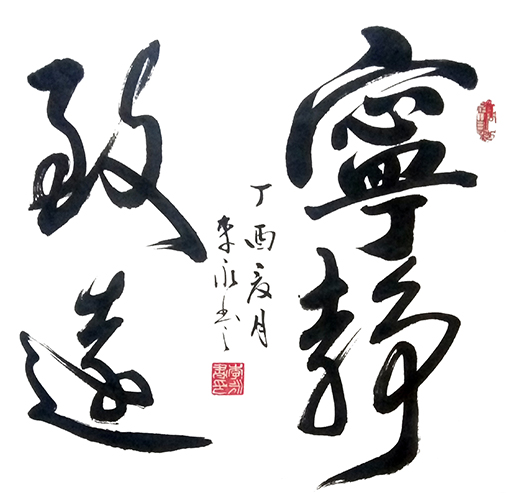 寧靜
致遠
丁酉夏月
李永书